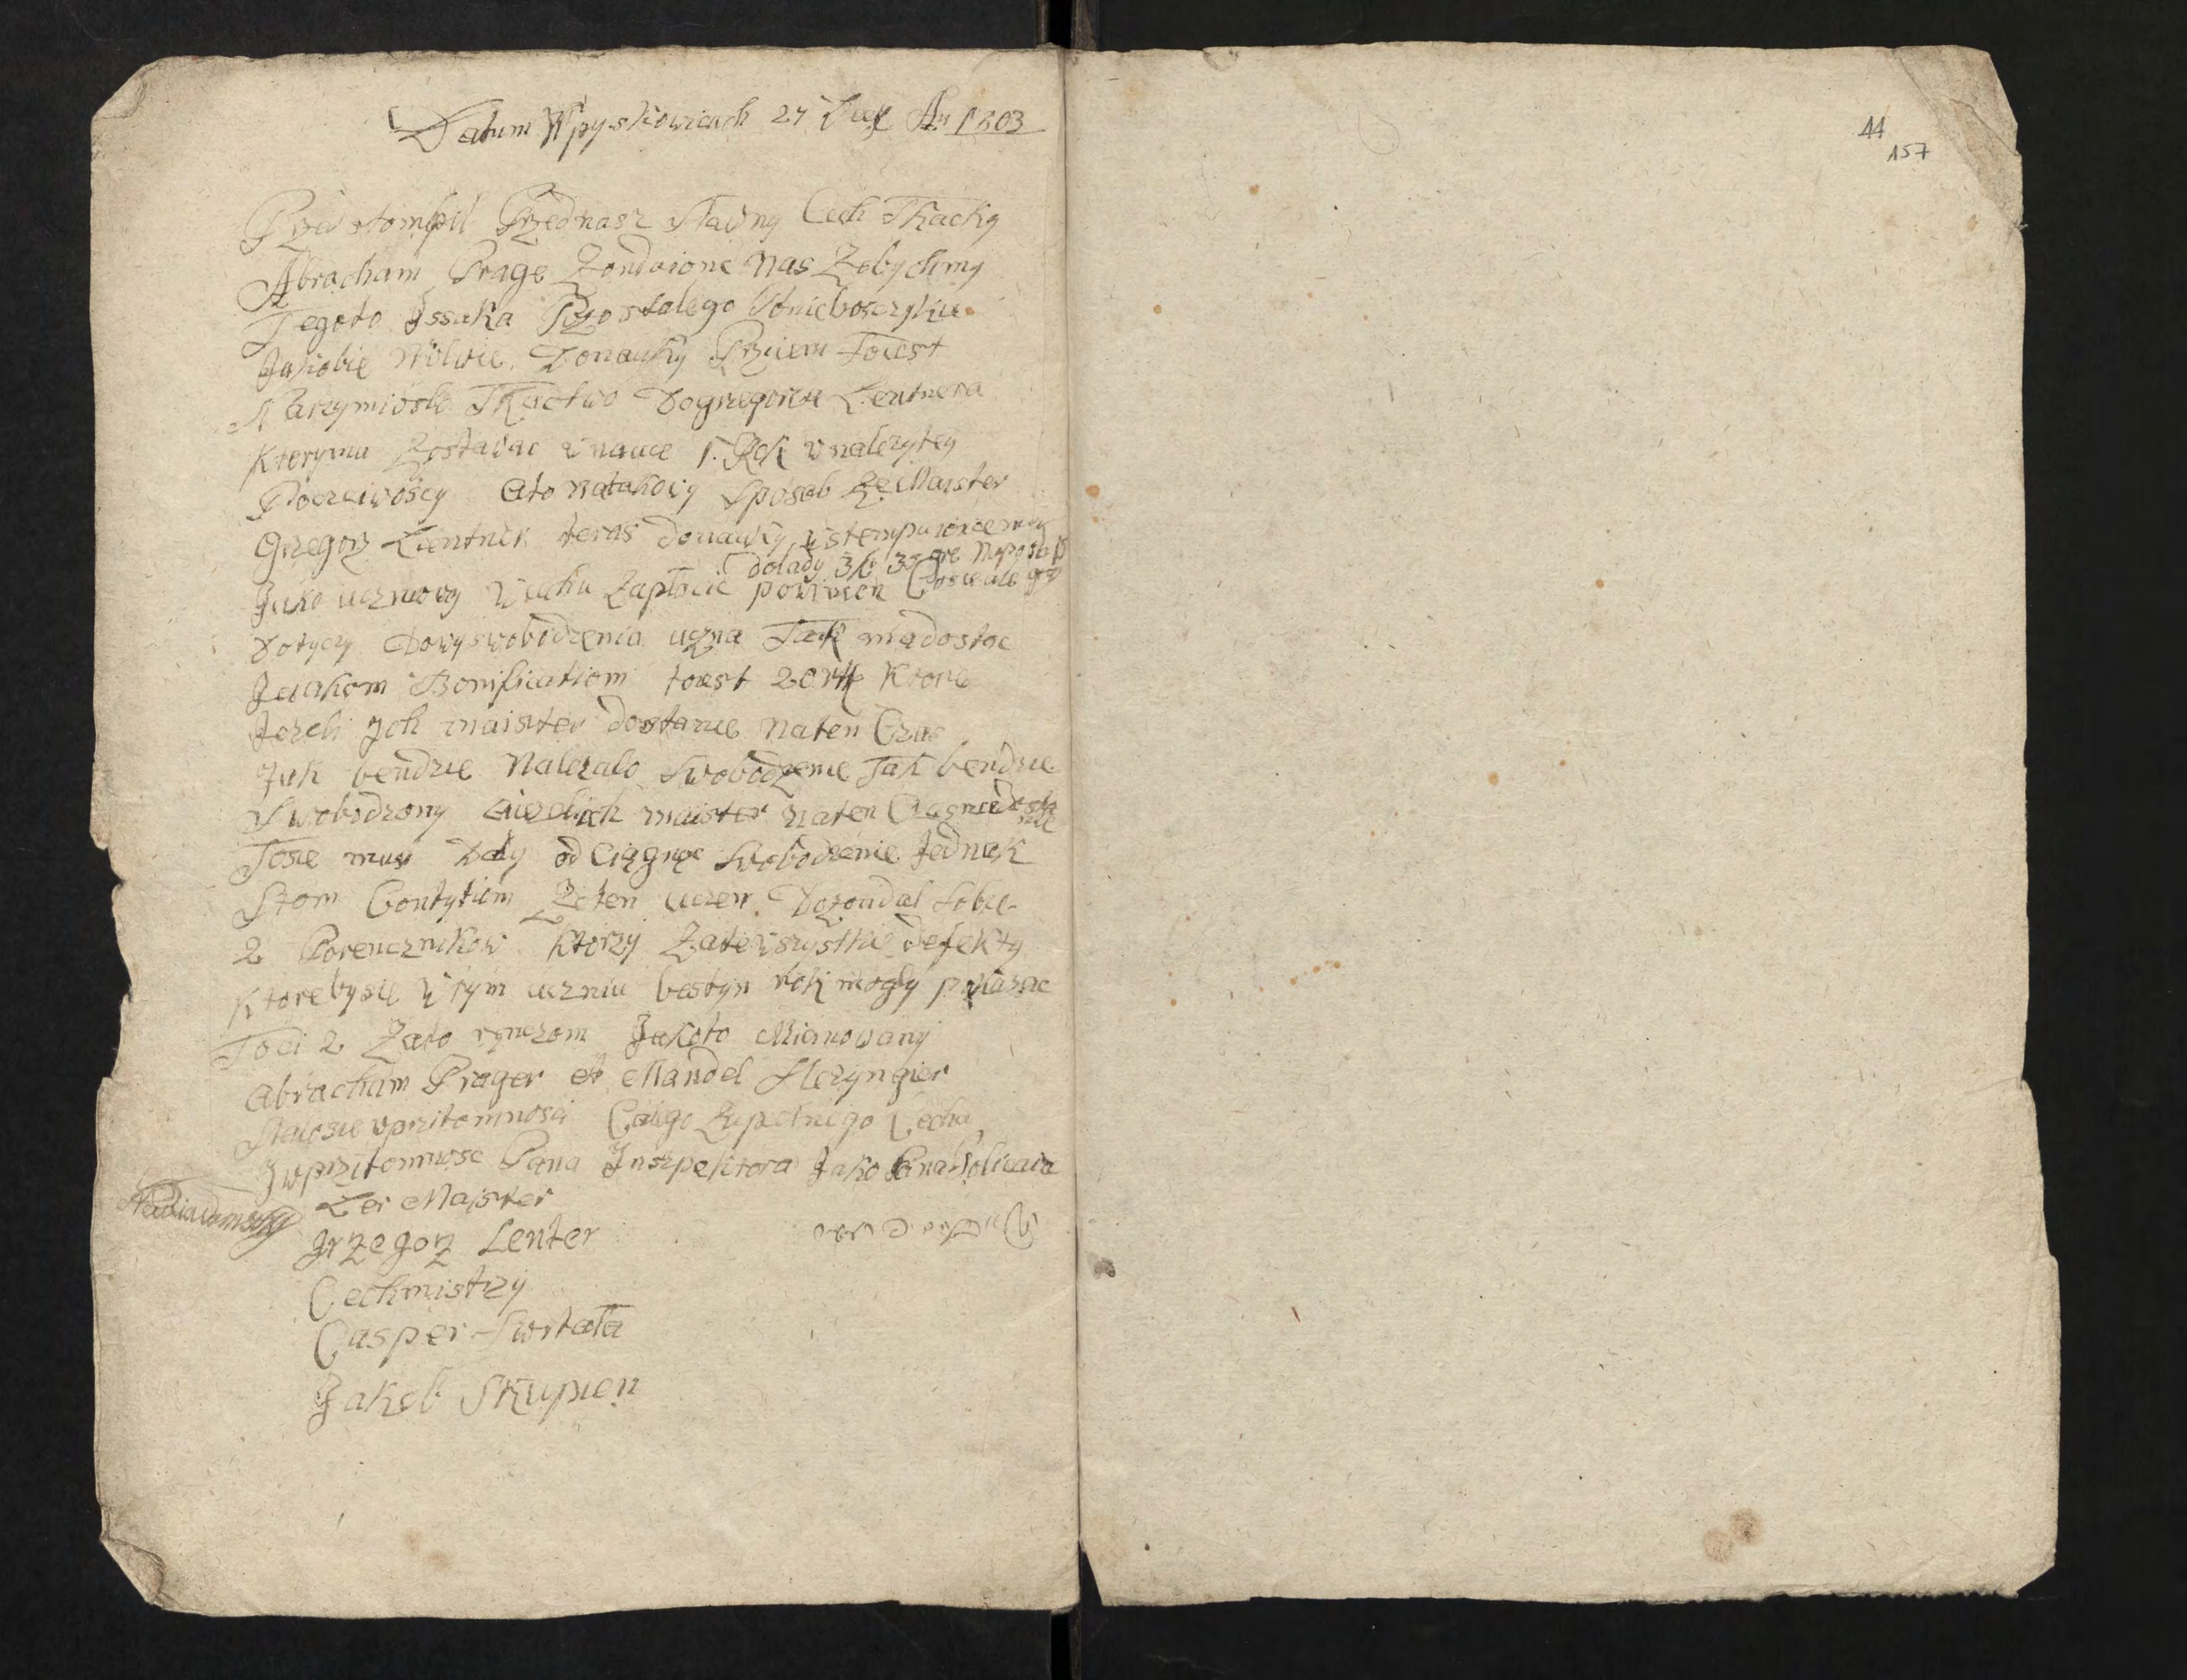 Datum W pyskowicach 27 An 1803
44
157
Przistompil Przednasz Slawny Cech Tkacky
Abracham Prage Zondaionc Nas Zebychmy
Tegoto Jssaka Pozostalego Ponieboszczyku
Jakobie Donauky Przciem toiest
Narzymioslo Tkactwo Dogrzegorza Lentnera
Ktorymu Zostawac w nauce 1. Rok w nalezytey
Poczciwoscy Ato natakowy Sposob Ze Maister
Grzegorz Lentner teras donauky wstempuioncemu
dolady
Jako uczniowy w cechu Zaplocic powinien
Dotyczy Dowyswobodzenia uczna Tak madostac
Jakom Bonificatiom toiest 20 rtl Ktore
Jezeli Jch maister dostanie Naten Czas
Jak bendzie Nalezalo Swobodzenie Tak bendzie
Swobodzony maister naten Czas niedosta
nie
Tosie musi Daly od Ciągnąc Swobodzenie Jednak
Stom Contytiom Zeten uczen Dozondal Sobie
2 Porencznikow Ktorzy Zatewszystkie defekty
Ktorebysie w tym uczniu bestyn rok mogly pokazac
Toci 2 Zato renczom Jakoto Mianowany
Abracham Prager et Mandel Sleryngier
Stalosie wprzitomnosci Calego Zupelnego Cechu
Jwprzitomnosc Pana Jnszpektora Jako
Ler Majster
Grzegorz Lenter
Cechmistrzy
Casper Swtala
Jakob Skupien